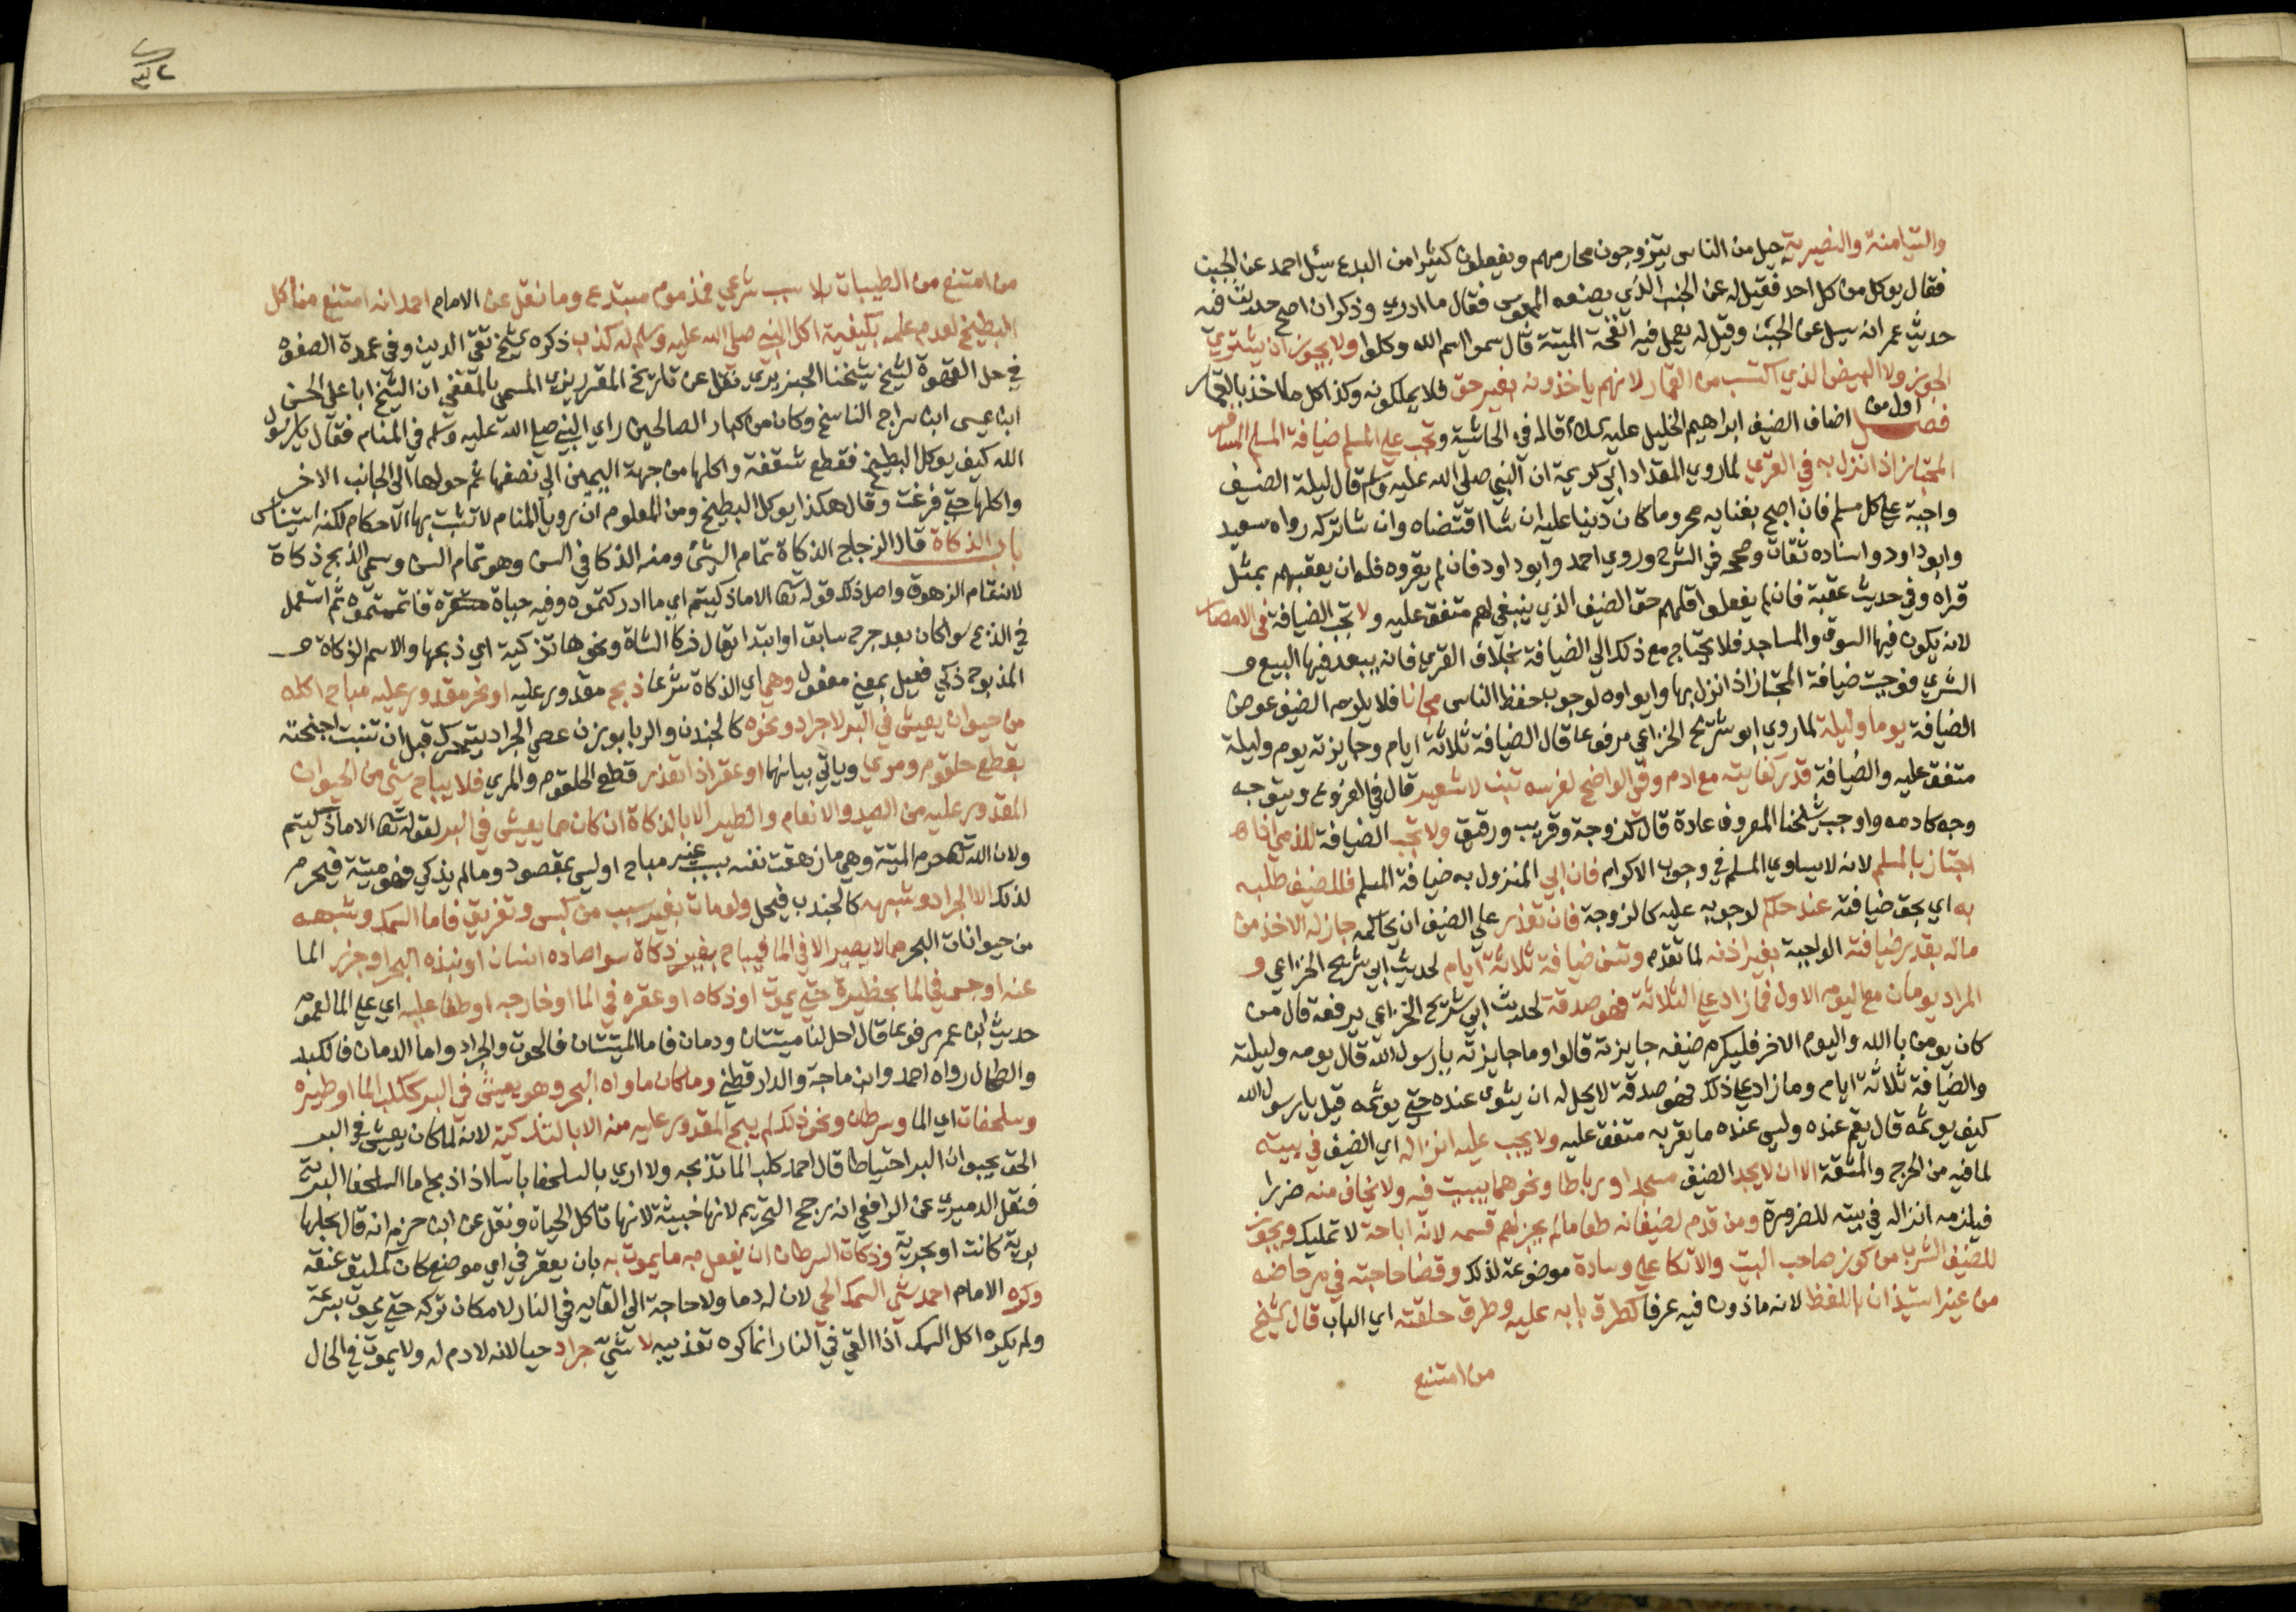 والتيامنة والنصيرية جيل من الناس يتزوجون محارمهم ويفعلون كثيرا من البدع سيل احمد عن الجبن
فقال يوكل من كل احد فقيل له عن الجبن الذي يصنعه المجوس فقال ما ادري وذكر ان اصح حديث فيه
حديث عمر انه سيل عن الجبن وقيل له يعمل فيه انفحة الميتة قال سموا اسم الله وكلوا ولا يجوز ان يشتري
الجوز ولا البيض الذي اكتسب من القمار لانهم ياخذونه بغير حق فلا يملكونه وكذا كل ما اخذ بالقمار
فصل اول من اضاف الضيف ابراهيم الخليل عليه السلام قاله في الحاشية وتجب على المسلم ضيافة المسلم المسافر
المجتاز اذا نزل به في القرى لما روى المقداد ابي كريمة ان النبي صلى الله عليه وسلم قال ليلة الضيف
واجبة على كل مسلم فان اصبح بفنايه محروما كان دينا عليه ان شا اقتضاه وان شا تركه رواه سعيد
وابو داود واسناده ثقات وصححه في الشرح وروى احمد وابو داود فان لم يقروه فله ان يعقبهم بمثل
قراه وفي حديث عقبة فان لم يفعلوا فلهم حق الضيف الذي ينبغي لهم متفق عليه ولا تجب الضيافة في الامصار
لانه يكون فيها السوق والمساجد فلا يحتاج مع ذلك الى الضيافة بخلاف القرى فانه يبعد فيها البيع و
الشرى فوجبت ضيافة المجتاز اذا نزل بها وايواوه لوجوب حفظ الناس مجانا فلا يلزم الضيف عوض
الضيافة يوما وليلة لما روى ابو شريح الخزاعي مرفوعا قال الضيافة ثلاثة ايام وجايزته يوم وليلة
متفق عليه والضيافة قدر كفايته مع ادم وفي الواضح لفرسه تبن لا شعير قال في الفروع ويتوجه
وجه كادمه واوجب شيخنا المعروف عادة قال كزوجة وقريب ورقيق ولا تجب الضيافة للذمي اذا
اجتاز بالمسلم لانه لا يساوي المسلم في وجوب الاكرام فان ابى المنزول به ضيافة المسلم فللضيف طلبه
به اي بحق ضيافته عند حاكم لوجوبه عليه كالزوجة فان تعذر على الضيف ان يحاكمه جاز له الاخذ من
ماله بقدر ضيافته الواجبة بغير اذنه لما تقدم وتسن ضيافة ثلاثة ايام لحديث ابي شريح الخزاعي و
المراد يومان مع اليوم الاول فما زاد على الثلاثة فهو صدقة لحديث ابي شريح الخزاعي يرفعه قال من
كان يومن بالله واليوم الاخر فليكرم ضيفه جايزته قالوا وما جايزته يارسول الله قال يومه وليلته
والضيافة ثلاثة ايام وما زاد على ذلك فهو صدقة لا يحل له ان يثوى عنده حتى يوثمه قيل يارسول الله
كيف يوثمه قال يقيم عنده وليس عنده ما يقريه متفق عليه ولا يجب عليه انزاله اي الضيف في بيته
لما فيه من الحرج والمشقة الا ان لا يجد الضيف مسجدا او رباطا ونحوهما يبيت فيه ولا يخاف منه ضررا
فيلزمه انزاله في بيته للضرورة ومن قدم لضيفانه طعاما لم يجز لهم قسمه لانه اباحة لا تمليك ويجوز
للضيف الشرب من كوز صاحب البيت والاتكا على وسادة موضوعة لذلك وقضا حاجته في مرحاضه
من غير استيذان باللفظ لانه ماذون فيه عرفا كطرق بابه عليه وطرق حلقته اي الباب قال شيخ
من امتنع
من امتنع من الطيبات بلا سبب شرعي فمذموم مبتدع وما نقل عن الامام احمد انه امتنع من اكل
البطيخ لعدم علمه بكيفية اكل النبي صلى الله عليه وسلم له كذب ذكره شيخ تقي الدين وفي عمدة الصفوة
في حل القهوة لشيخ شيخنا الجزيري نقل عن تاريخ المقريزي المسمى بالمقفي ان الشيخ ابا علي الحسن
ابن عيسى ابن سراج الناسخ وكان من كبار الصالحين راى النبي صلى الله عليه وسلم في المنام فقال يارسول
الله كيف يوكل البطيخ فقطع شقفة واكلها من جهة اليمين الى نصفها ثم حولها الى الجانب الاخر
واكلها حتى فرغت وقال هكذا يوكل البطيخ ومن المعلوم ان رويا المنام لا تثبت بها الاحكام لكنه استيناس
باب الذكاة قال الزجاج الذكاة تمام الشي ومنه الذكا في السن وهو تمام السن وسمي الذبح ذكاة
لانه تمام الزهوق واصل ذلك قوله تعالى الا ما ذكيتم اي ما ادركتموه وفيه حياة مستقرة فاتممتموه ثم استعمل
في الذبح سوا كان بعد جرح سابق او ابتدا يقال ذكا الشاة ونحوها تذكية اي ذبحها والاسم الذكاة و
المذبوح ذكي فعيل بمعنى مفعول وهي اي الذكاة شرعا ذبح مقدور عليه او نحر مقدور عليه مباح اكله
من حيوان يعيش في البر لا جراد ونحوه كالجندب والدبا بوزن عصى الجراد يتحرك قبل ان تنبت اجنحته
بقطع حلقوم ومري وياتي بيانهما او عقر اذا تعذر قطع الحلقوم والمري فلا يباح شي من الحيوان
المقدور عليه من الصيد والانعام والطير الا بالذكاة ان كان مما يعيش في البر لقوله تعالى الا ما ذكيتم
ولان الله تعالى حرم الميتة وهي ما زهقت نفسه بسبب غير مباح او ليس بمقصود وما لم يذكى فهو ميتة فيحرم
لذلك الا الجراد وشبهه كالجندب فيحل ولو مات بغير سبب من كبس وتفريق فاما السمك وشبهه
من حيوانات البحر مما لا يصير الا في الما فيباح بغير ذكاة سوا صاده انسان او نبذه البحر او جزر الما
عنه او حبس في الما بحظيرة حتى يموت او ذكاه او عقره في الما او خارجه او طفا عليه اي على الما لعموم
حديث ابن عمر مرفوعا قال احل لنا ميتتان ودمان فاما الميتتان فالحوت والجراد واما الدمان فالكبد
والطحال رواه احمد وابن ماجة والدارقطني وما كان ماواه البحر وهو يعيش في البر ككلب الما وطيره
وسلحفاة اي الما وسرطان ونحو ذلك لم يبح المقدور عليه منه الا بالتذكية لانه لما كان يعيش في البر
الحق بحيوان البر احتياطا قال احمد كلب الما تذبحه ولا ارى بالسلحفا باسا اذا ذبح اما السلحفا البرية
فنقل الدميري عن الرافعي انه رجح التحريم لانها خبيثة لانها تاكل الحياة ونقل عن ابن حزم انه قال بحلها
برية كانت او بحرية وذكاة السرطان ان يفعل به ما يموت به بان يعقر في اي موضع كان كملتوي عنقه
وكره الامام احمد شي السمك الحي لان له دما ولا حاجة الى القايه في النار لامكان تركه حتى يموت بسرعة
ولم يكره اكل السمك اذا القي في النار انما كره تعذيبه لا شي جراد حيا لانه لا دم له ولا يموت في الحال